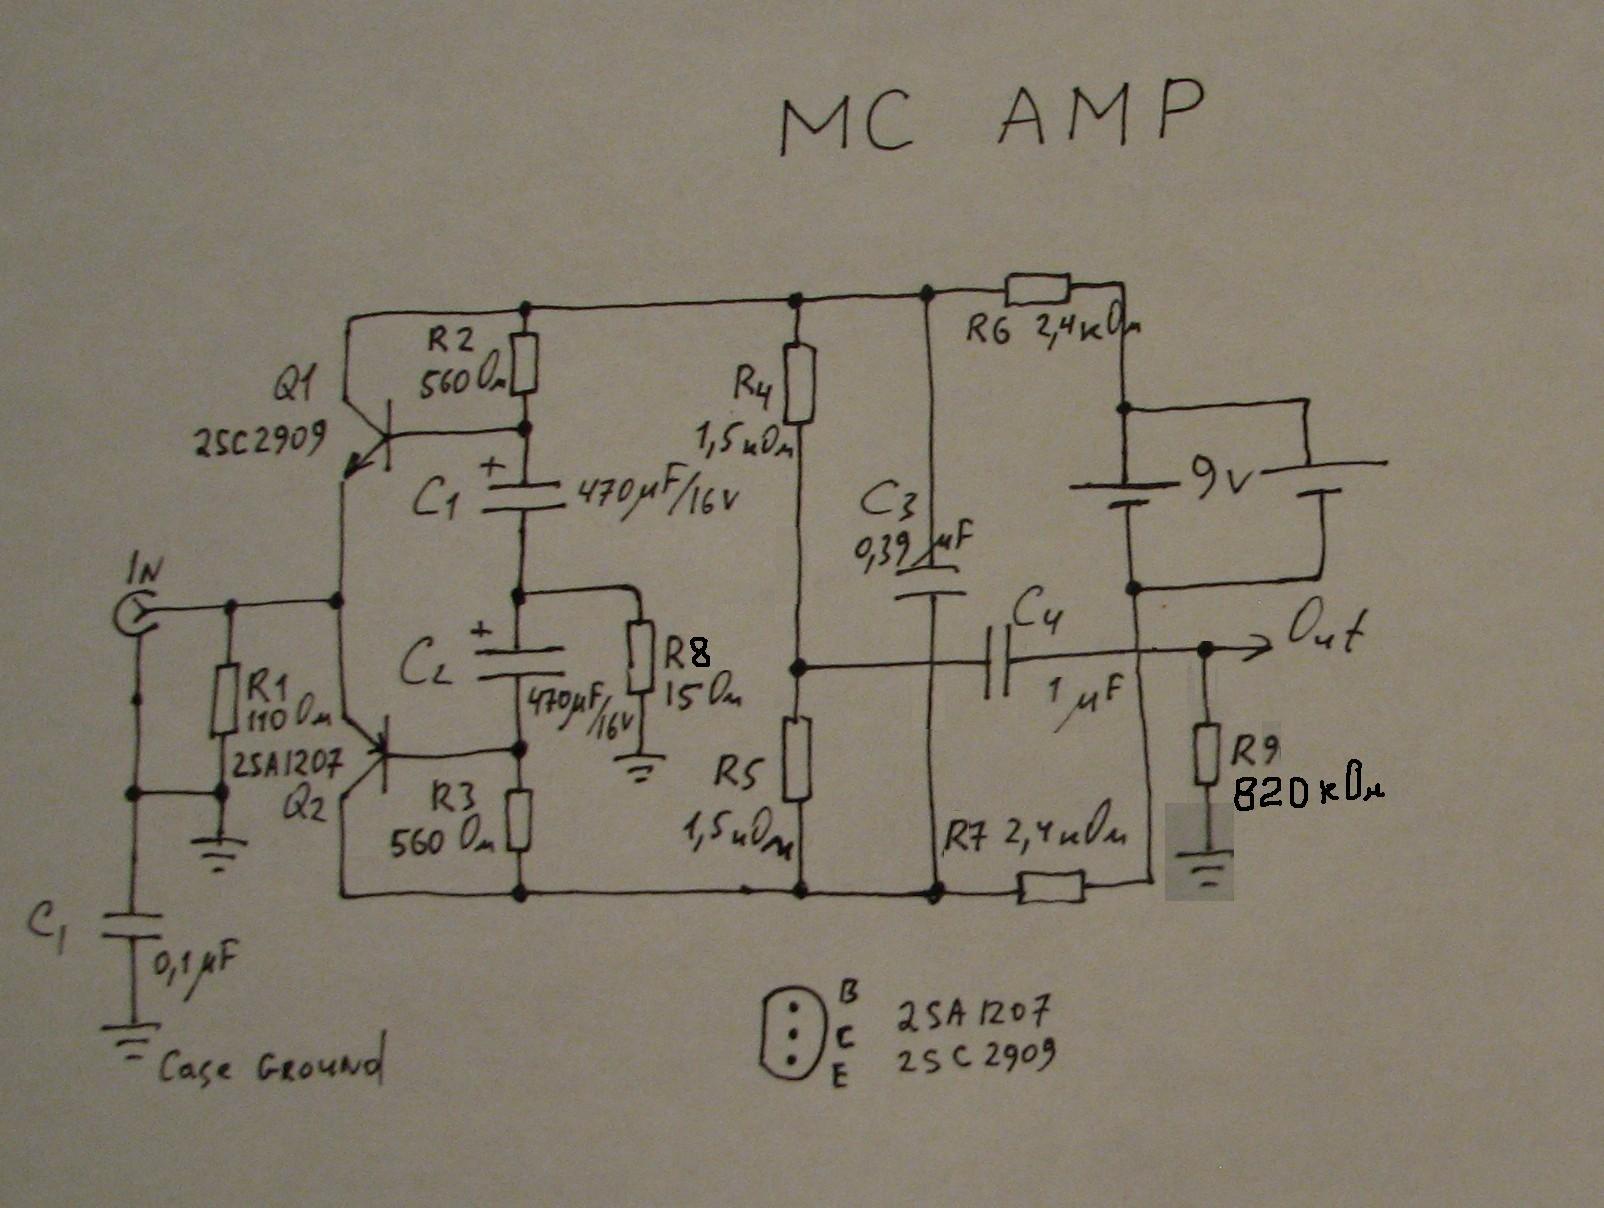 MC AMP
R6 2,4кОм
R2
560 Ом
Q1
2SC2909
R4
1,5кОм
+
C1
470µF/16V
C3
0,39 µF
9v
IN
C4
1 µF
Out
+
C2
470µF/16V
R8
15 Ом
R1
110 Ом
2SA1207
Q2
R3
560 Ом
R5
1,5кОм
R7 2,4кОм
R9
820 кОм
C1
0,1µF
Case GROUND
B
C
E
2SA1207
2SC2909